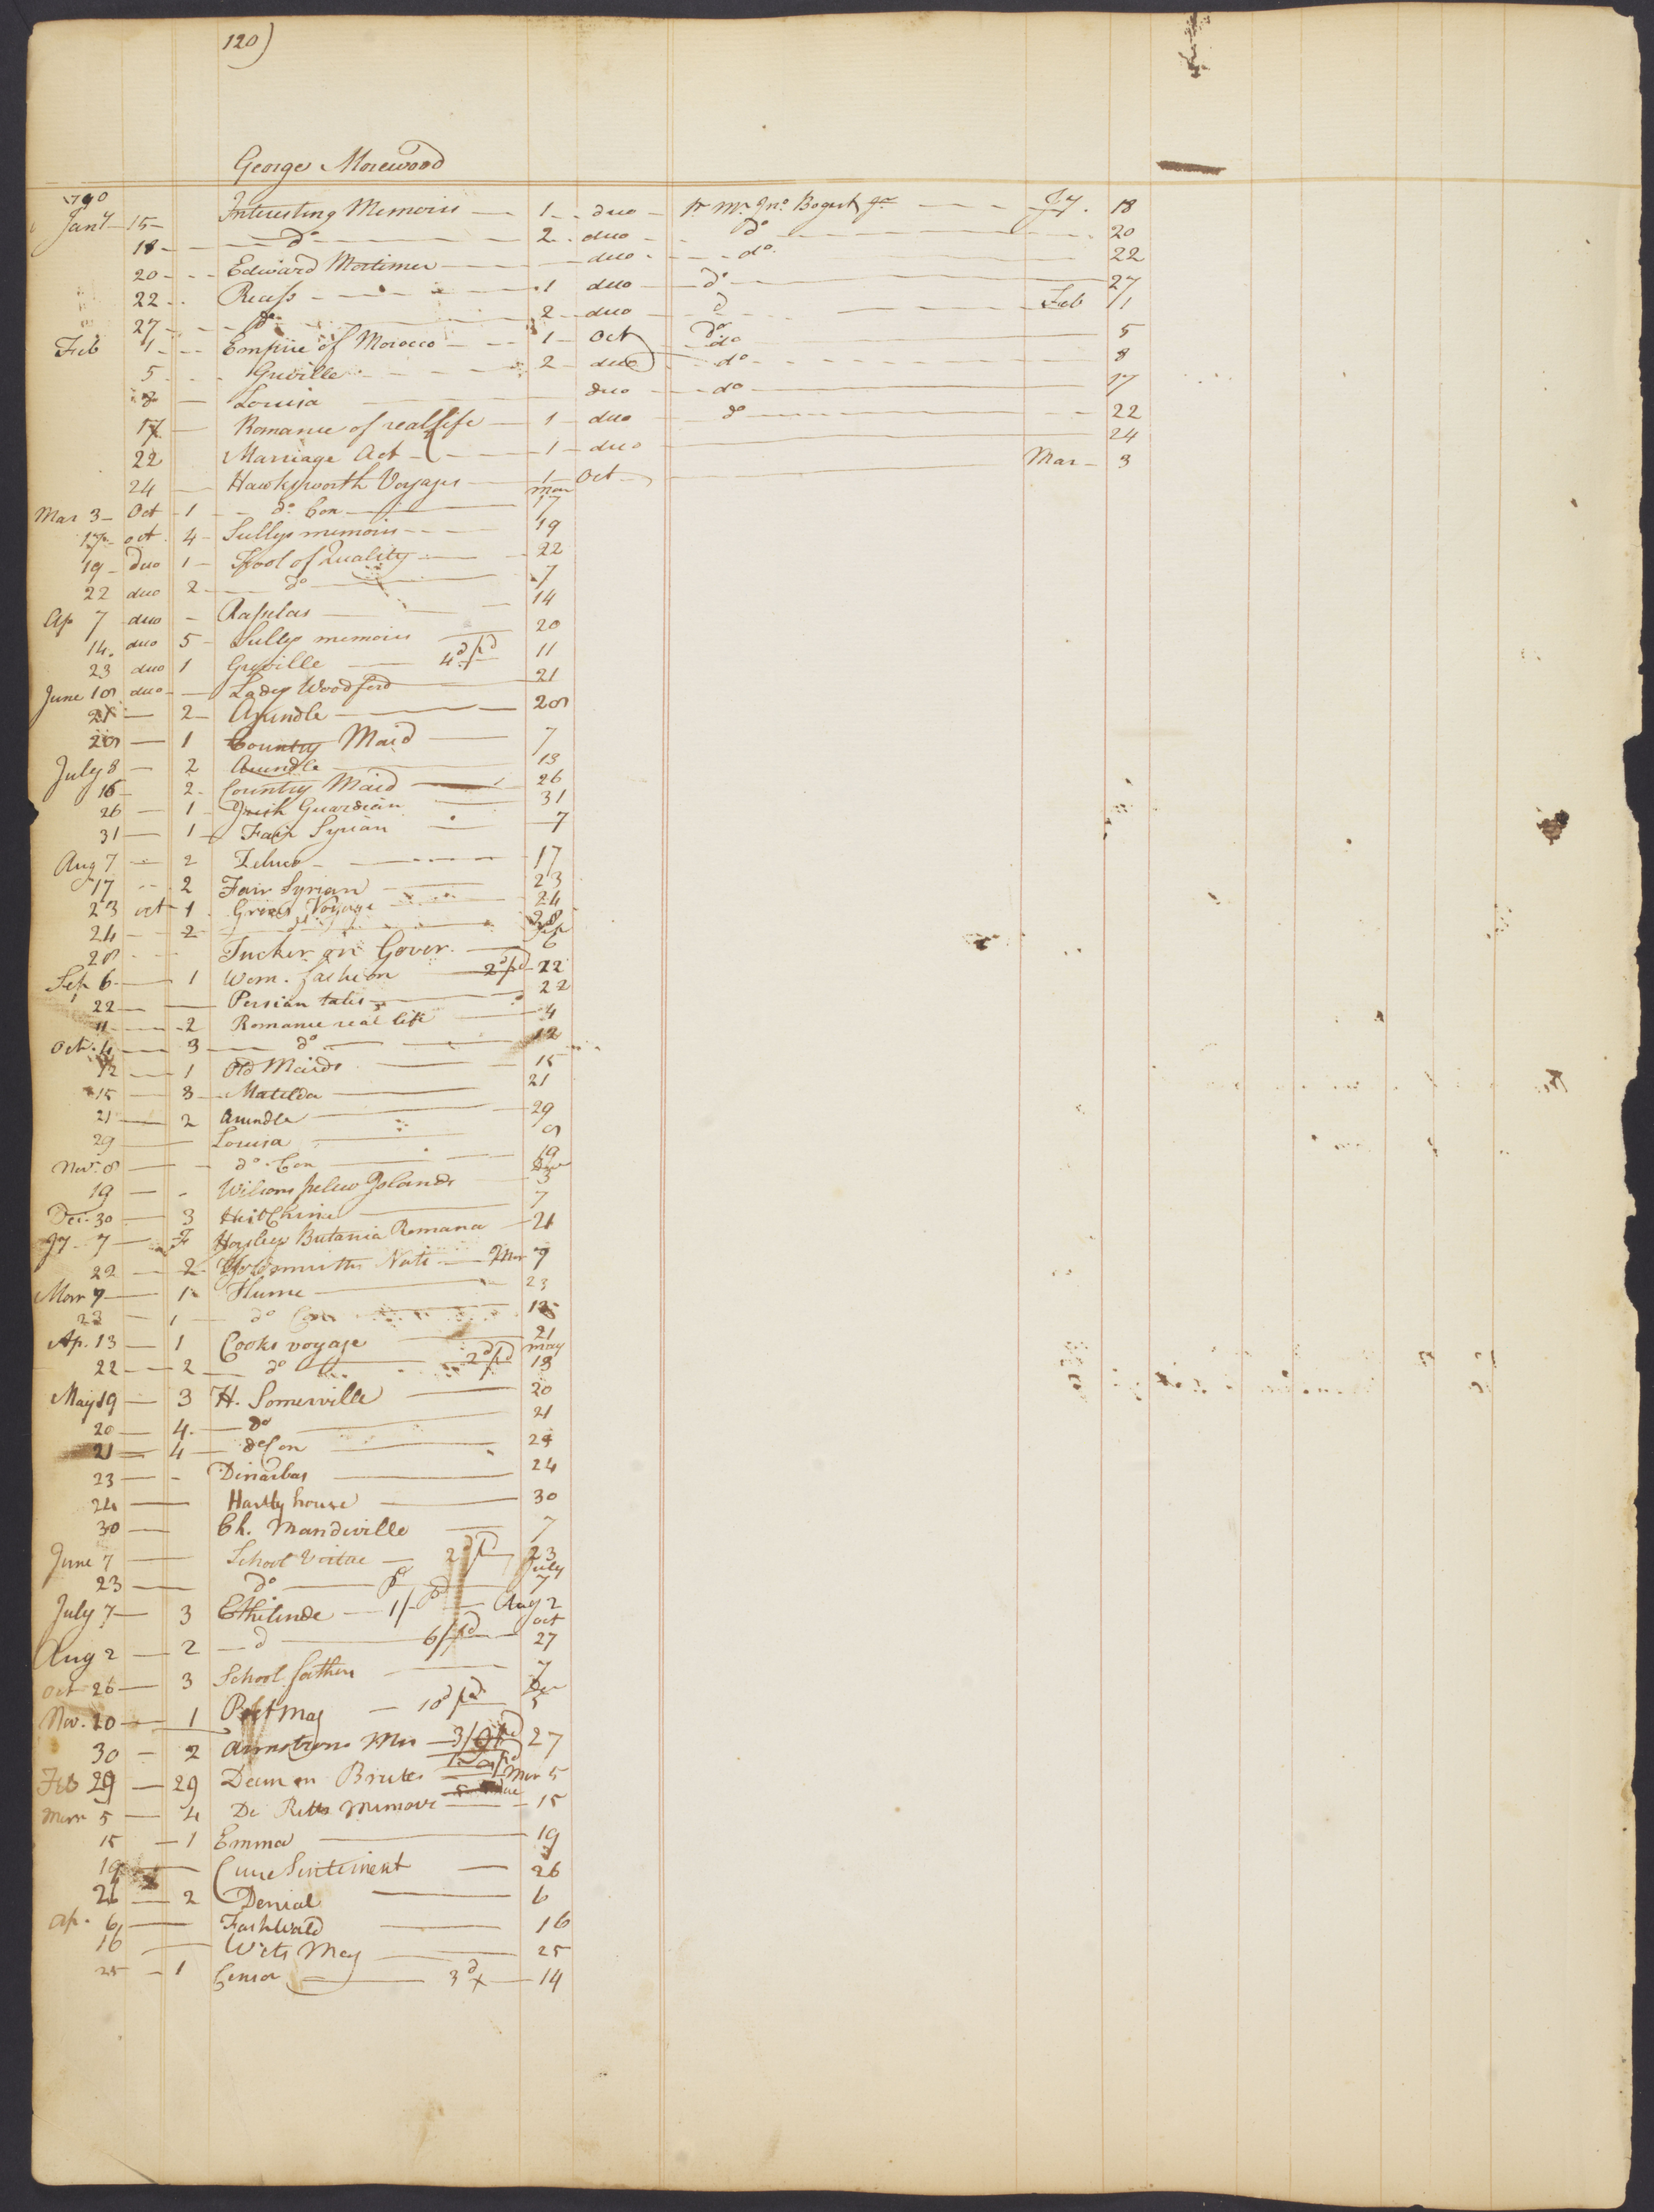 120)
George Morewood
1790
Jany 15 Interesting Memoirs 1 duo pr Mr Jno Bogert Jr Jy. 18
18 do 2 duo do 20
20 Edward Mortimer duo do 22
22 Recess 1 duo do 27
27 do 2 duo d Feb 1
Feb 1 Empire of Morocco 1 Oct do 5
5 Greville 2 duo do 8
8 Louisa duo do 17
17 Romance of real life 1 duo do 22
22 Marriage Act 1 duo 24
24 Hawksworth Voyages 1 Oct Mar 3
Mar 3 Oct 1 do Con mar 17
17 oct 4 Sullys memoirs 19
19 Duo 1 Fool of Quality 22
22 duo 2 do 7
Ap 7 duo Rasselas 14
14. duo 5 Sullys memoirs 20
23 duo 1 Greville 4d pd 11
June 18 duo Ladys Woodford 21
21 2 Arundle 28
28 1 Country Maid 7
July 8 2 Arundle 13
16 2 Country Maid 26
26 1 Irish Guardian 31
31 1 Fair Syrian 7
Aug 7 2 Zeluco 17
17 2 Fair Syrian 23
23 oct 1 Voyage 24
24 2 28
28 Tucker on Gover. Sep 6
Sep 6 1 Wom. fashion 2d pd 22
22 Persian tales 22
11 2 Romance real life 4
Oct. 4 3 do 12
12 1 Old Maids 15
15 3 Matilda 21
21 2 Arundle 29
29 Louisa 8
Nov. 8 do Con 19
19 Wilsons pelew Islands 3
Dec. 30 3 7
Jy 7 F Horsleys Britania Romana 21
22 2 Goldsmiths Nat Mar 7
Marr 7 1 Hume 23
23 1 do Con 13
Ap. 13 1 Cooks voyage 21
22 2 do 2d pd may 13
May 19 3 H. Somerville 20
20 4 do 21
21 4 do Con 23
23 Dinarbas 24
24 Hartly house 30
30 Ch. Mandeville 7
June 7 School Virtue 2d pd 23
23 do July 7
July 7 3 Ethelinde 1/- pd Aug 2
Aug 2 2 d 6/ pd oct 27
Oct 26 3 School fathers 7
Nov. 20 1 Mag 10d pd Dec 5
30 2 Armstrong Mis 3/9 pd 27
Feb 29 29 Dean on Brutes Mar 5
Marr 5 4 De Retts Memoir 15
15 1 Emma 19
19 Cure Sentiment 26
26 2 Denial 6
Ap. 6 Fash 16
16 Wits Mag 25
25 1 Censor 3d x 14